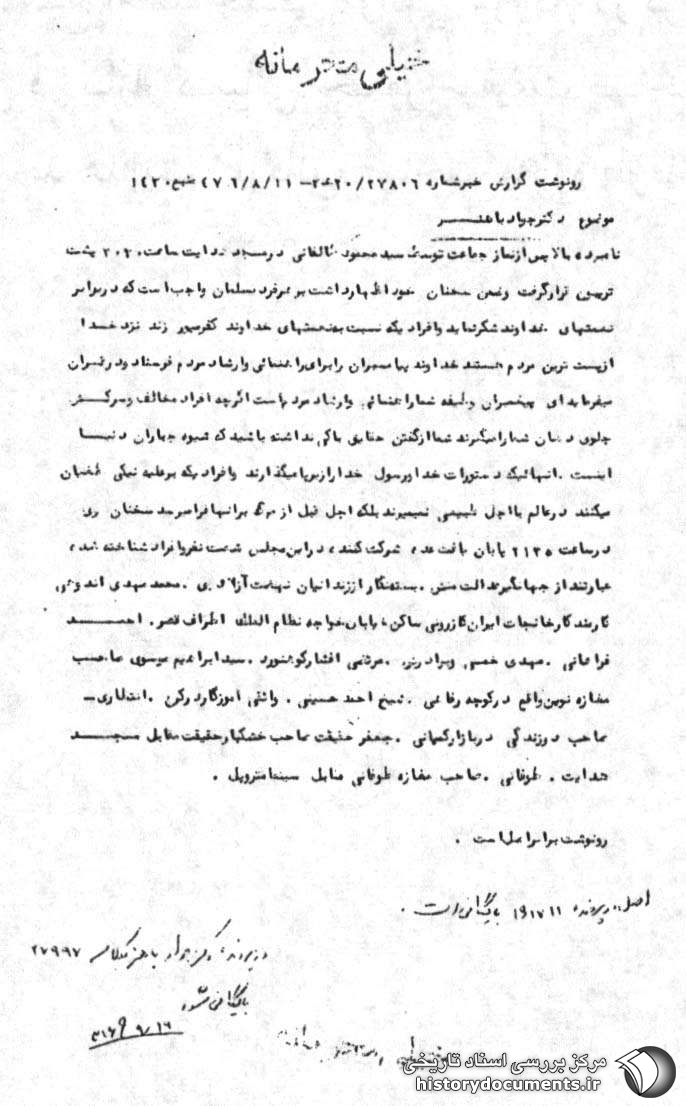 خیلی محرمانه
رونوشت گزارش خبر شماره ۲۷۸۰۶/۲۰ - ۴۷/۶/۸/۱۱ منبع ۱۴۳۰
موضوع دکتر جواد باهنر
نامبرده بالا پس از نماز جماعت توسط سید محمود طالقانی در مسجد هدایت ساعت ۲۰۳۰ پشت
تریبون قرار گرفت و ضمن سخنان خود اظهار داشت بر هر فرد مسلمان واجب است که در برابر
نعمتهای خداوند شکر نماید و افرادیکه نسبت به نعمتهای خداوند کفر میورزند نزد خدا
از پست ترین مردم هستند خداوند پیامبران را برای راهنمائی و ارشاد مردم فرستاد و در قران
میفرماید ای پیغمبران وظیفه شما راهنمائی و ارشاد مردم است اگرچه افراد مخالف و سرکش
جلوی دهان شما را میگیرند شما از گفتن حقایق باکی نداشته باشید که شیوه جباران دنیا
اینست . انهائیکه دستورات خدا و رسول خدا را زیر پا میگذارند و افرادیکه بر علیه نیکی طغیان
میکنند در عالم با اجل طبیعی نمیمیرند بلکه اجل قبل از مرگ بر انها فرا میرسد سخنان وی
در ساعت ۲۱۳۵ پایان یافت عده شرکت کننده در این مجلس شصت نفر و افراد شناخته شده
عبارتند از جهانگیر عدالت منش . بسته نگار از زندانیان نهضت آزادی . محمد مهدی اندوهی
کارمند کارخانجات ایران کازرونی ساکن خیابان خواجه نظام الملک اطراف قصر . احمد
فراهانی . مهدی خمسی و برادرش . مرتضی افشار کوهنورد . سید ابراهیم موسوی صاحب
مغازه نوین واقع در کوچه رفاهی . شیخ احمد حسینی . واثقی اموزگار در کرج . انتظاری -
صاحب دوزندگی در بازار کیهانی . جعفر حقیقت صاحب خشکبار حقیقت مقابل مسجد
هدایت . طوفانی . صاحب مغازه طوفانی مقابل سینما متروپل .
رونوشت برابر اصل است .
اصل در پرونده ۱۹۱۷۱۱ بایگانی است .
در پرونده دکتر جواد باهنر کلاسه ۲۷۹۹۷
بایگانی شود
۹/۱۶
خیلی محرمانه
مرکز بررسی اسناد تاریخی
historydocuments.ir